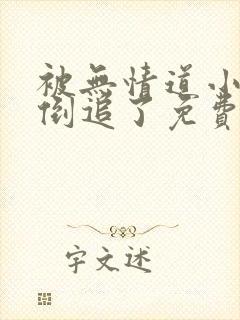 被無情道小
倒追了免費
字文述